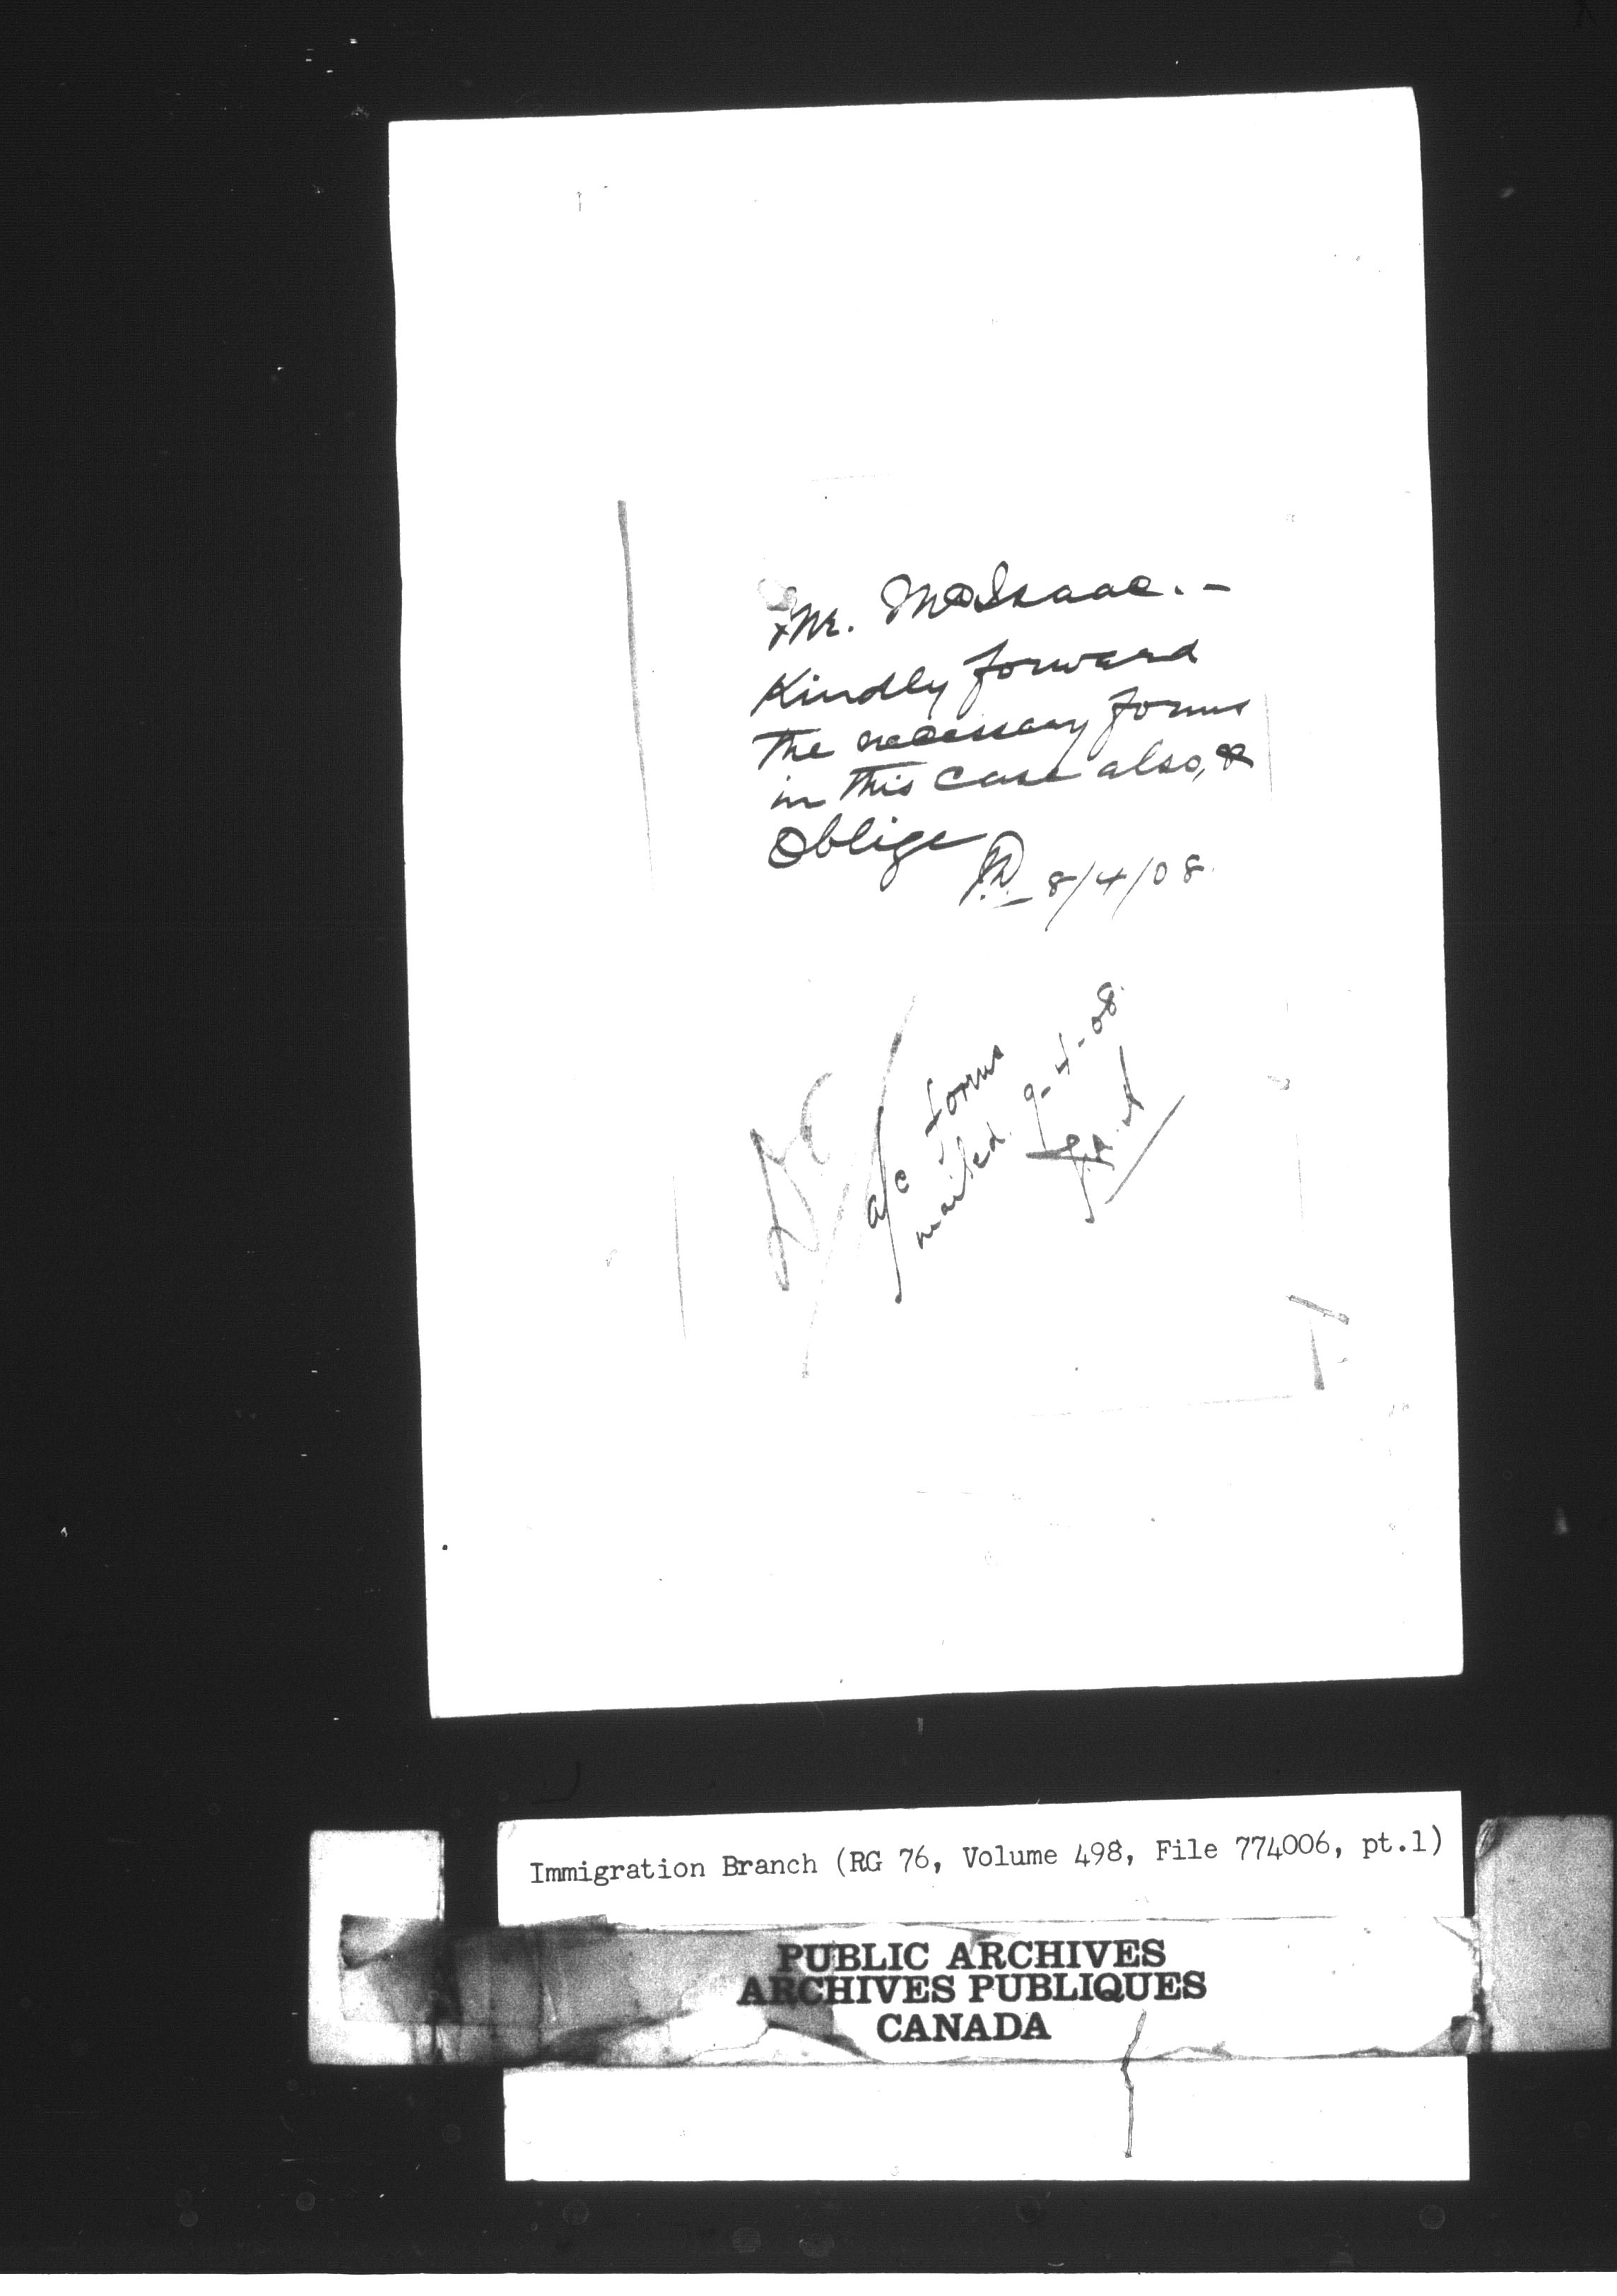 Mr. McIsaac. -
Kindly forward
the necessary forms
in this case also, &
oblige
8/4/08.
a/c forms
mailed. 9-4-08
Immigration Branch (RG 76, Volume 498, File 774006, pt.1)
PUBLIC ARCHIVES
ARCHIVES PUBLIQUES
CANADA